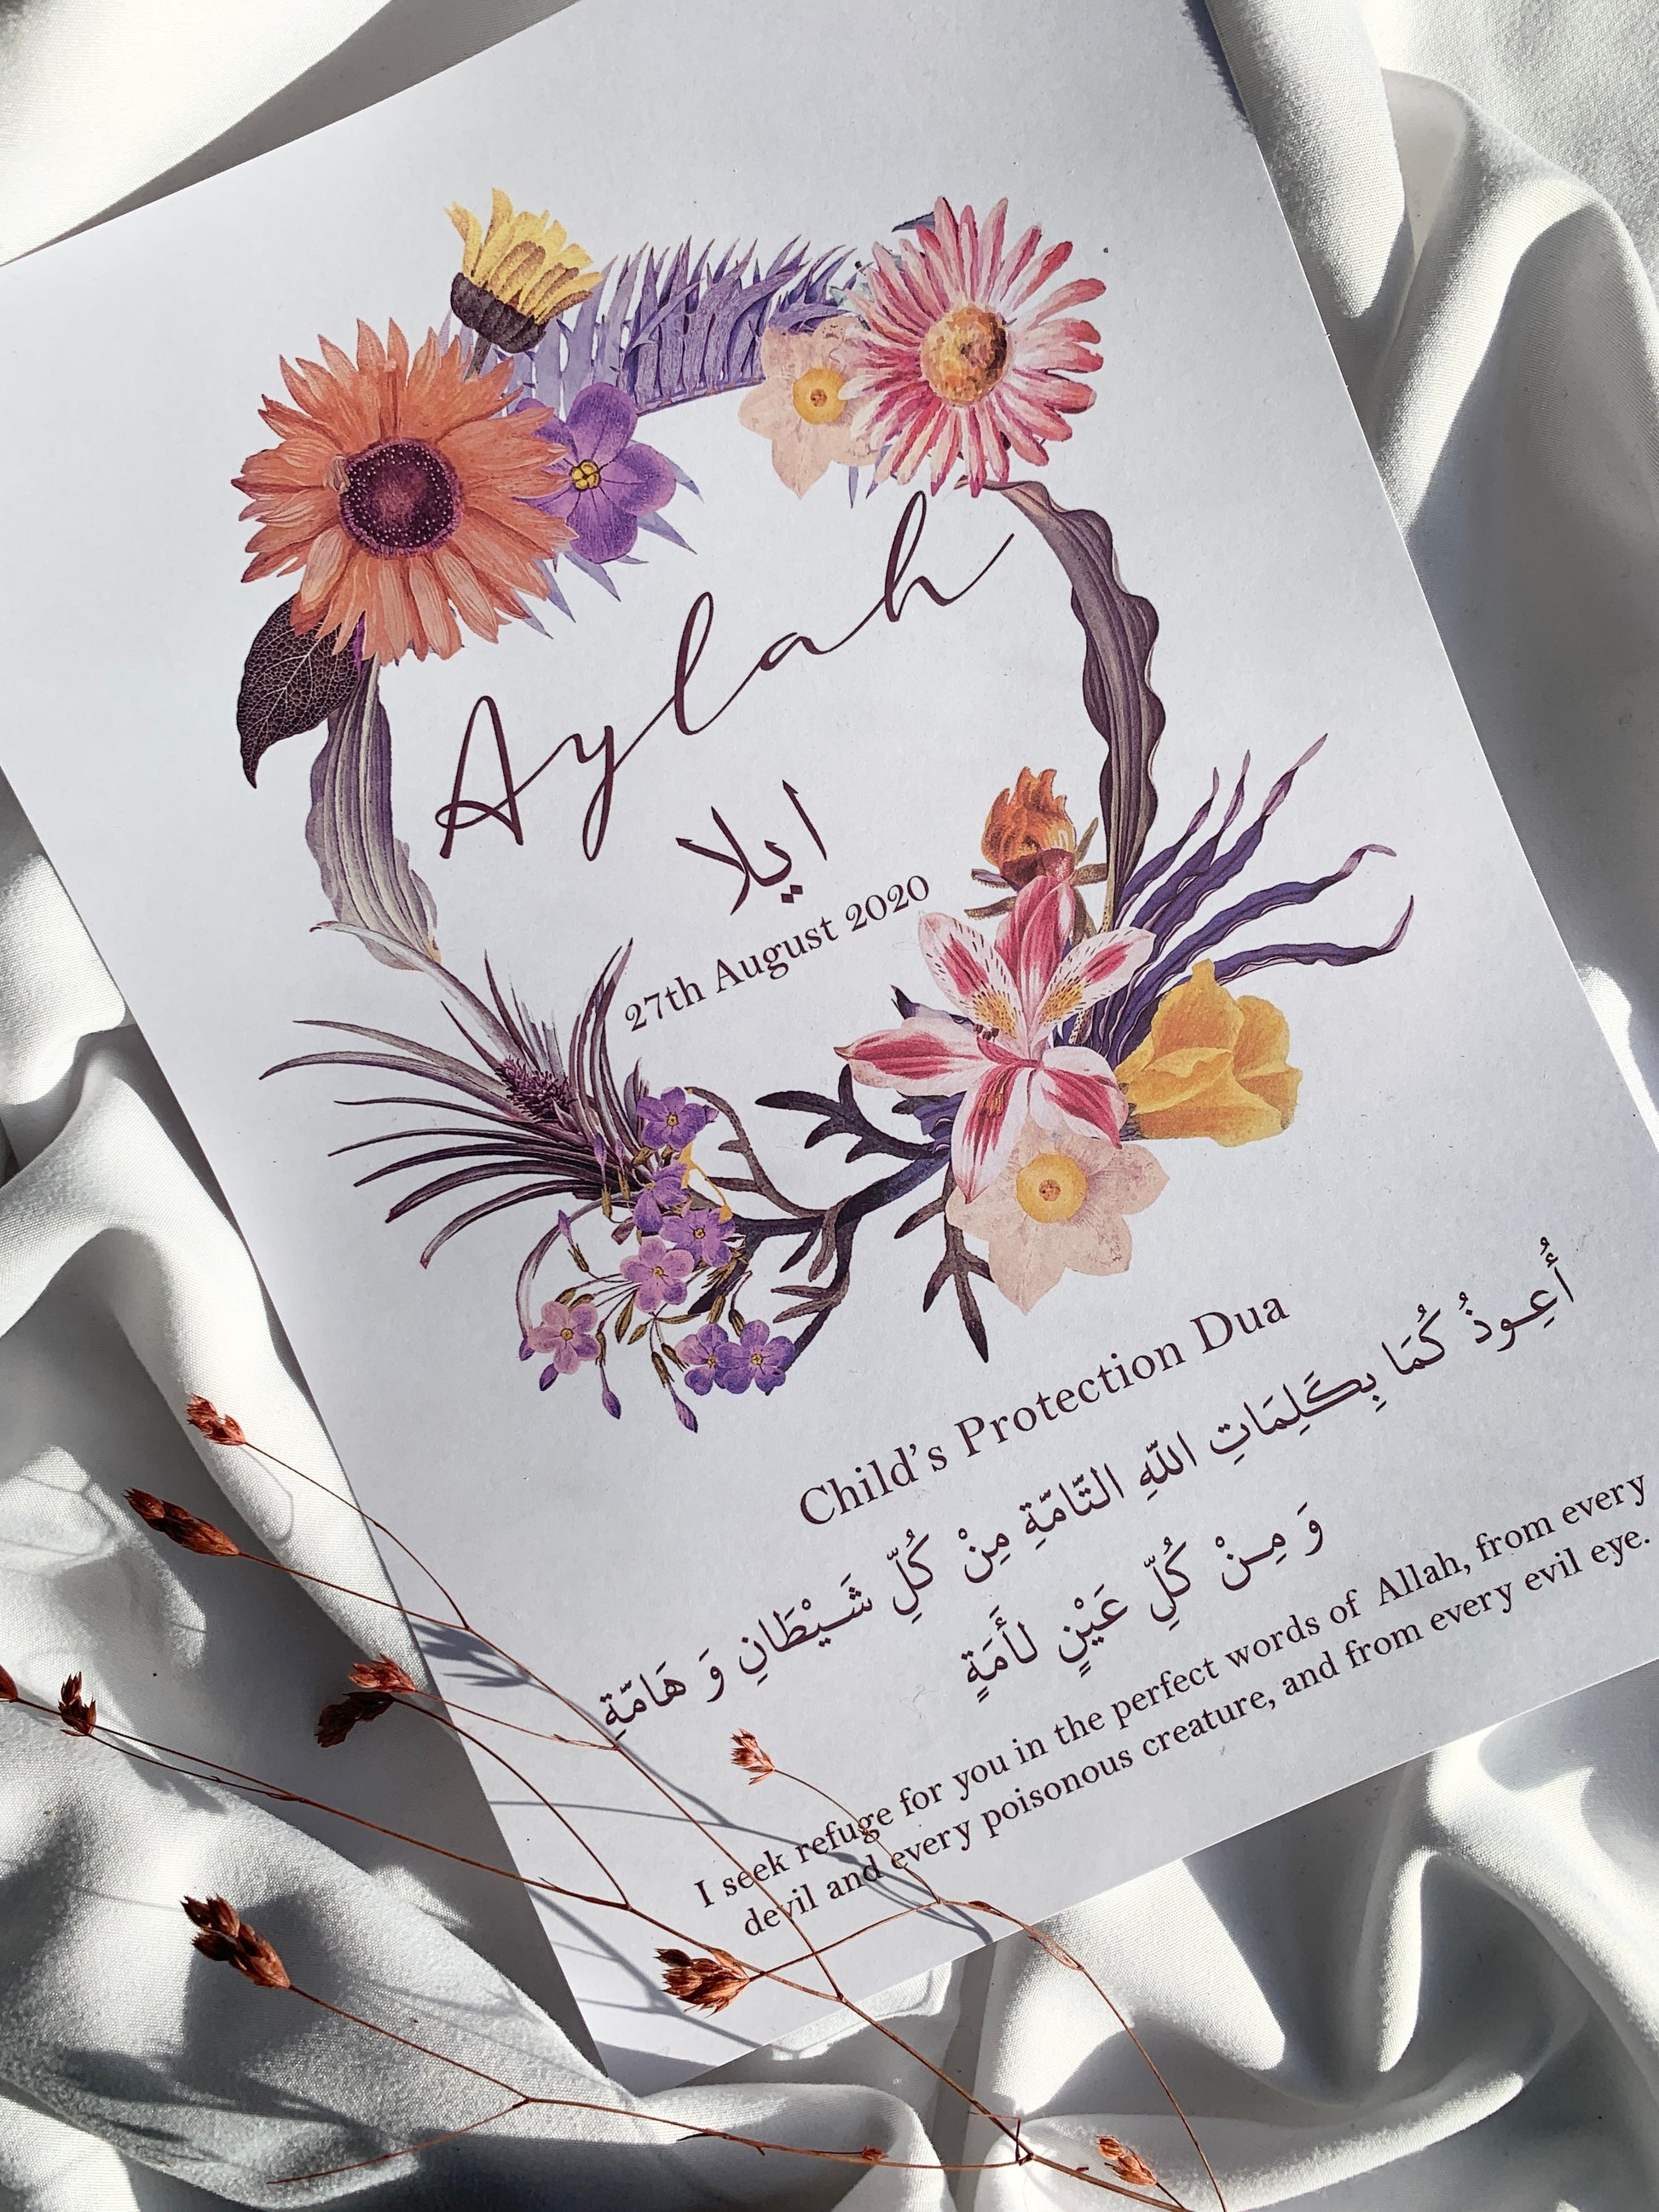 Aylah
ايلا
27th August 2020
Child's Protection Dua
أُعِوذُ كُمَا بِكَلِمَاتِ اللّٰهِ التَّامَّةِ مِنْ كُلِّ شَيْطَانِ وَ هَامَّةِ
وَ مِنْ كُلِّ عَيْنٍ لأَمَةٍ
I seek refuge for you in the perfect words of Allah, from every
devil and every poisonous creature, and from every evil eye.